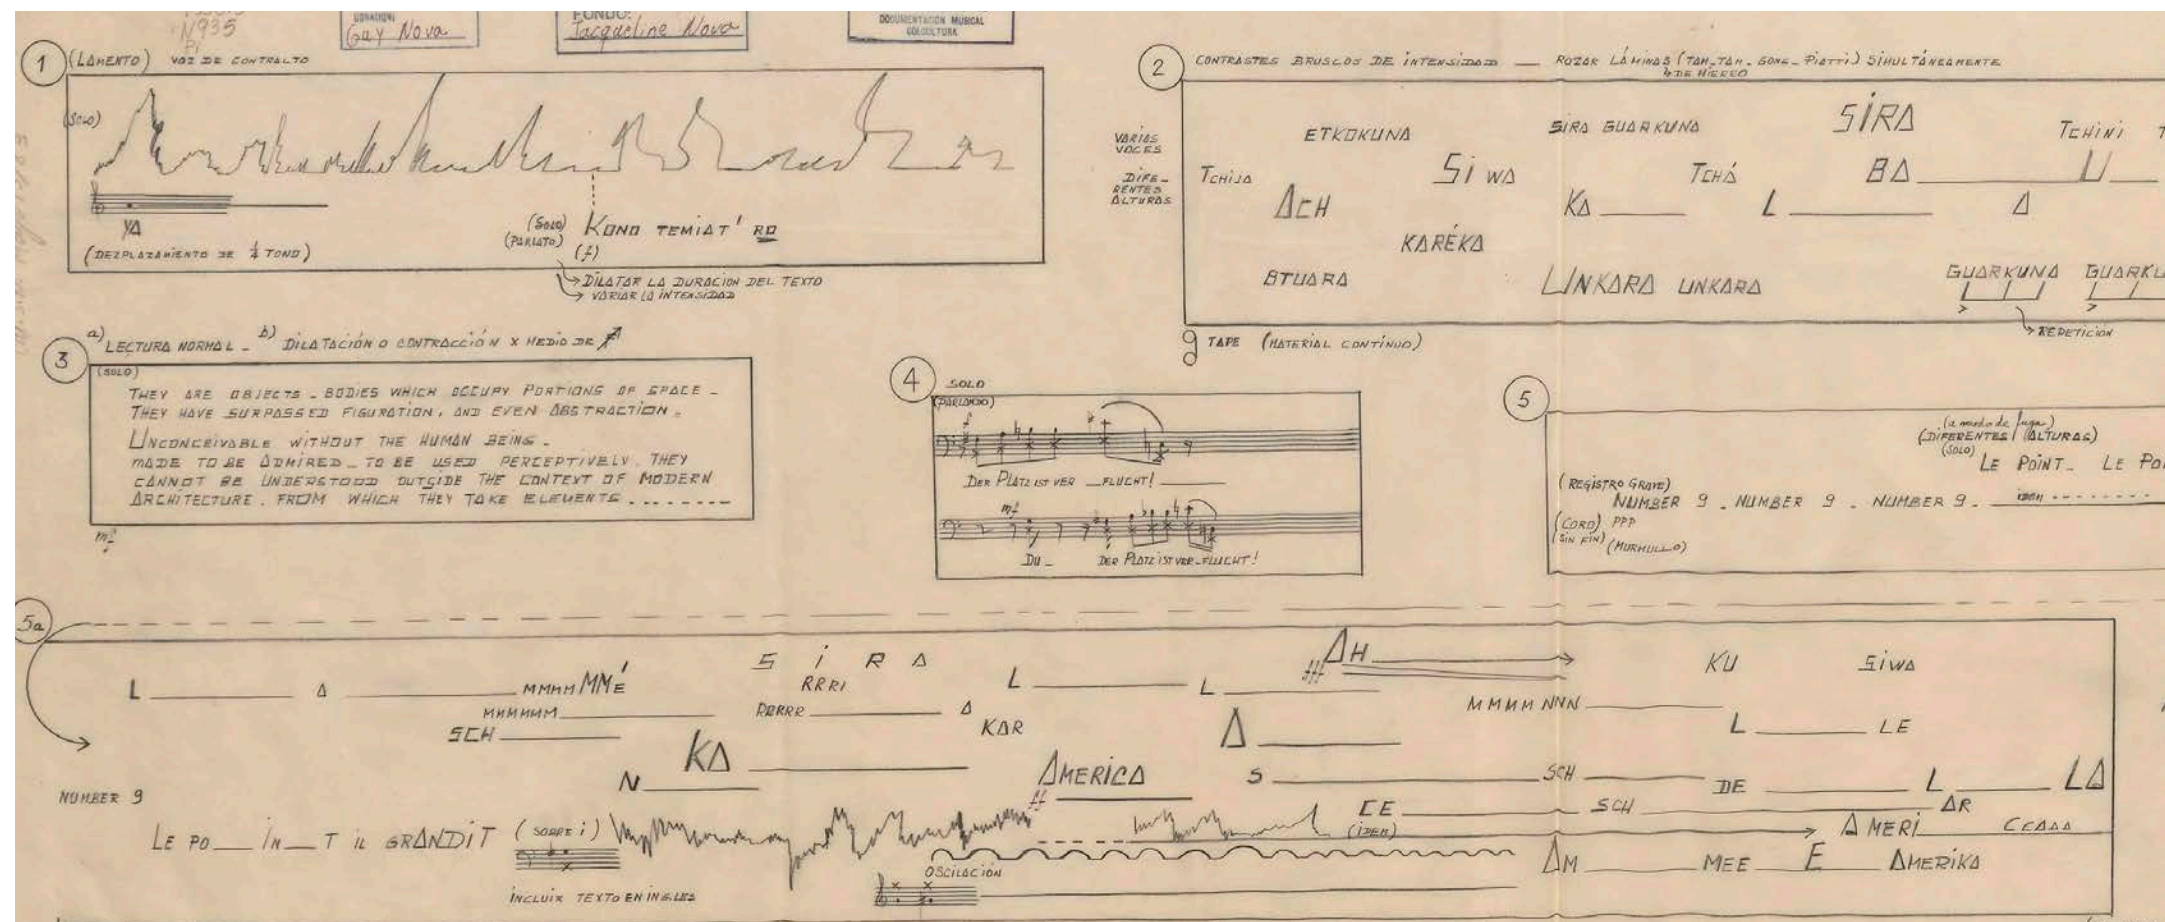 N935
DONACION:
Gay Nova
FONDO:
Jacqueline Nova
DOCUMENTACION MUSICAL
COLCULTURA
1 (LAMENTO) VOZ DE CONTRALTO
(SOLO)
YA
(DEZPLAZAMIENTO DE ¼ TONO)
(SOLO)
(PARLATO)
KONO TEMIAT' RO
(f)
DILATAR LA DURACION DEL TEXTO
VARIAR LA INTENSIDAD
2 CONTRASTES BRUSCOS DE INTENSIDAD — ROZAR LÁMINAS (TAM-TAM-GONG-PIATTI) SIMULTÁNEAMENTE
DE HIERRO
VARIAS
VOCES
DIFE-
RENTES
ALTURAS
ETKOKUNA SIRA GUARKUNA SIRA TCHINI T
TCHIJA SIWA TCHÁ BA U
ACH KA L A
KARÉKA
BTUARA UNKARA UNKARA GUARKUNA GUARKU
REPETICIÓN
TAPE (MATERIAL CONTÍNUO)
3 a) LECTURA NORMAL - b) DILATACIÓN O CONTRACCIÓN X MEDIO DE
(SOLO)
THEY ARE OBJECTS - BODIES WHICH OCCUPY PORTIONS OF SPACE -
THEY HAVE SURPASSED FIGURATION, AND EVEN ABSTRACTION -
UNCONCEIVABLE WITHOUT THE HUMAN BEING -
MADE TO BE ADMIRED - TO BE USED PERCEPTIVELY. THEY
CANNOT BE UNDERSTOOD OUTSIDE THE CONTEXT OF MODERN
ARCHITECTURE. FROM WHICH THEY TAKE ELEMENTS ........
mf
4 SOLO
(PARLANDO)
f
DER PLATZ IST VER _FLUCHT!
mf
DU_ DER PLATZ IST VER_FLUCHT!
5
(a modo de fuga)
(DIFERENTES ALTURAS)
(SOLO) LE POINT_ LE PO
(REGISTRO GRAVE)
NUMBER 9 - NUMBER 9 - NUMBER 9 - idem --------
(CORO) PPP
(SIN FIN) (MURMULLO)
5a
L A MMMM MMÉ S I R A L L fff AH KU SIWA
MMMMMM RRRI MMMM NNN
SCH RRRRR A KAR A L LE
N KA AMERICA S SCH DE L LA
NUMBER 9 ff CE SCH AR
LE PO__IN__T IL GRANDIT (SOBRE i) (IDEM) AMERI CCAAA
OSCILACIÓN AM MEE E AMERIKA
INCLUIR TEXTO EN INGLES